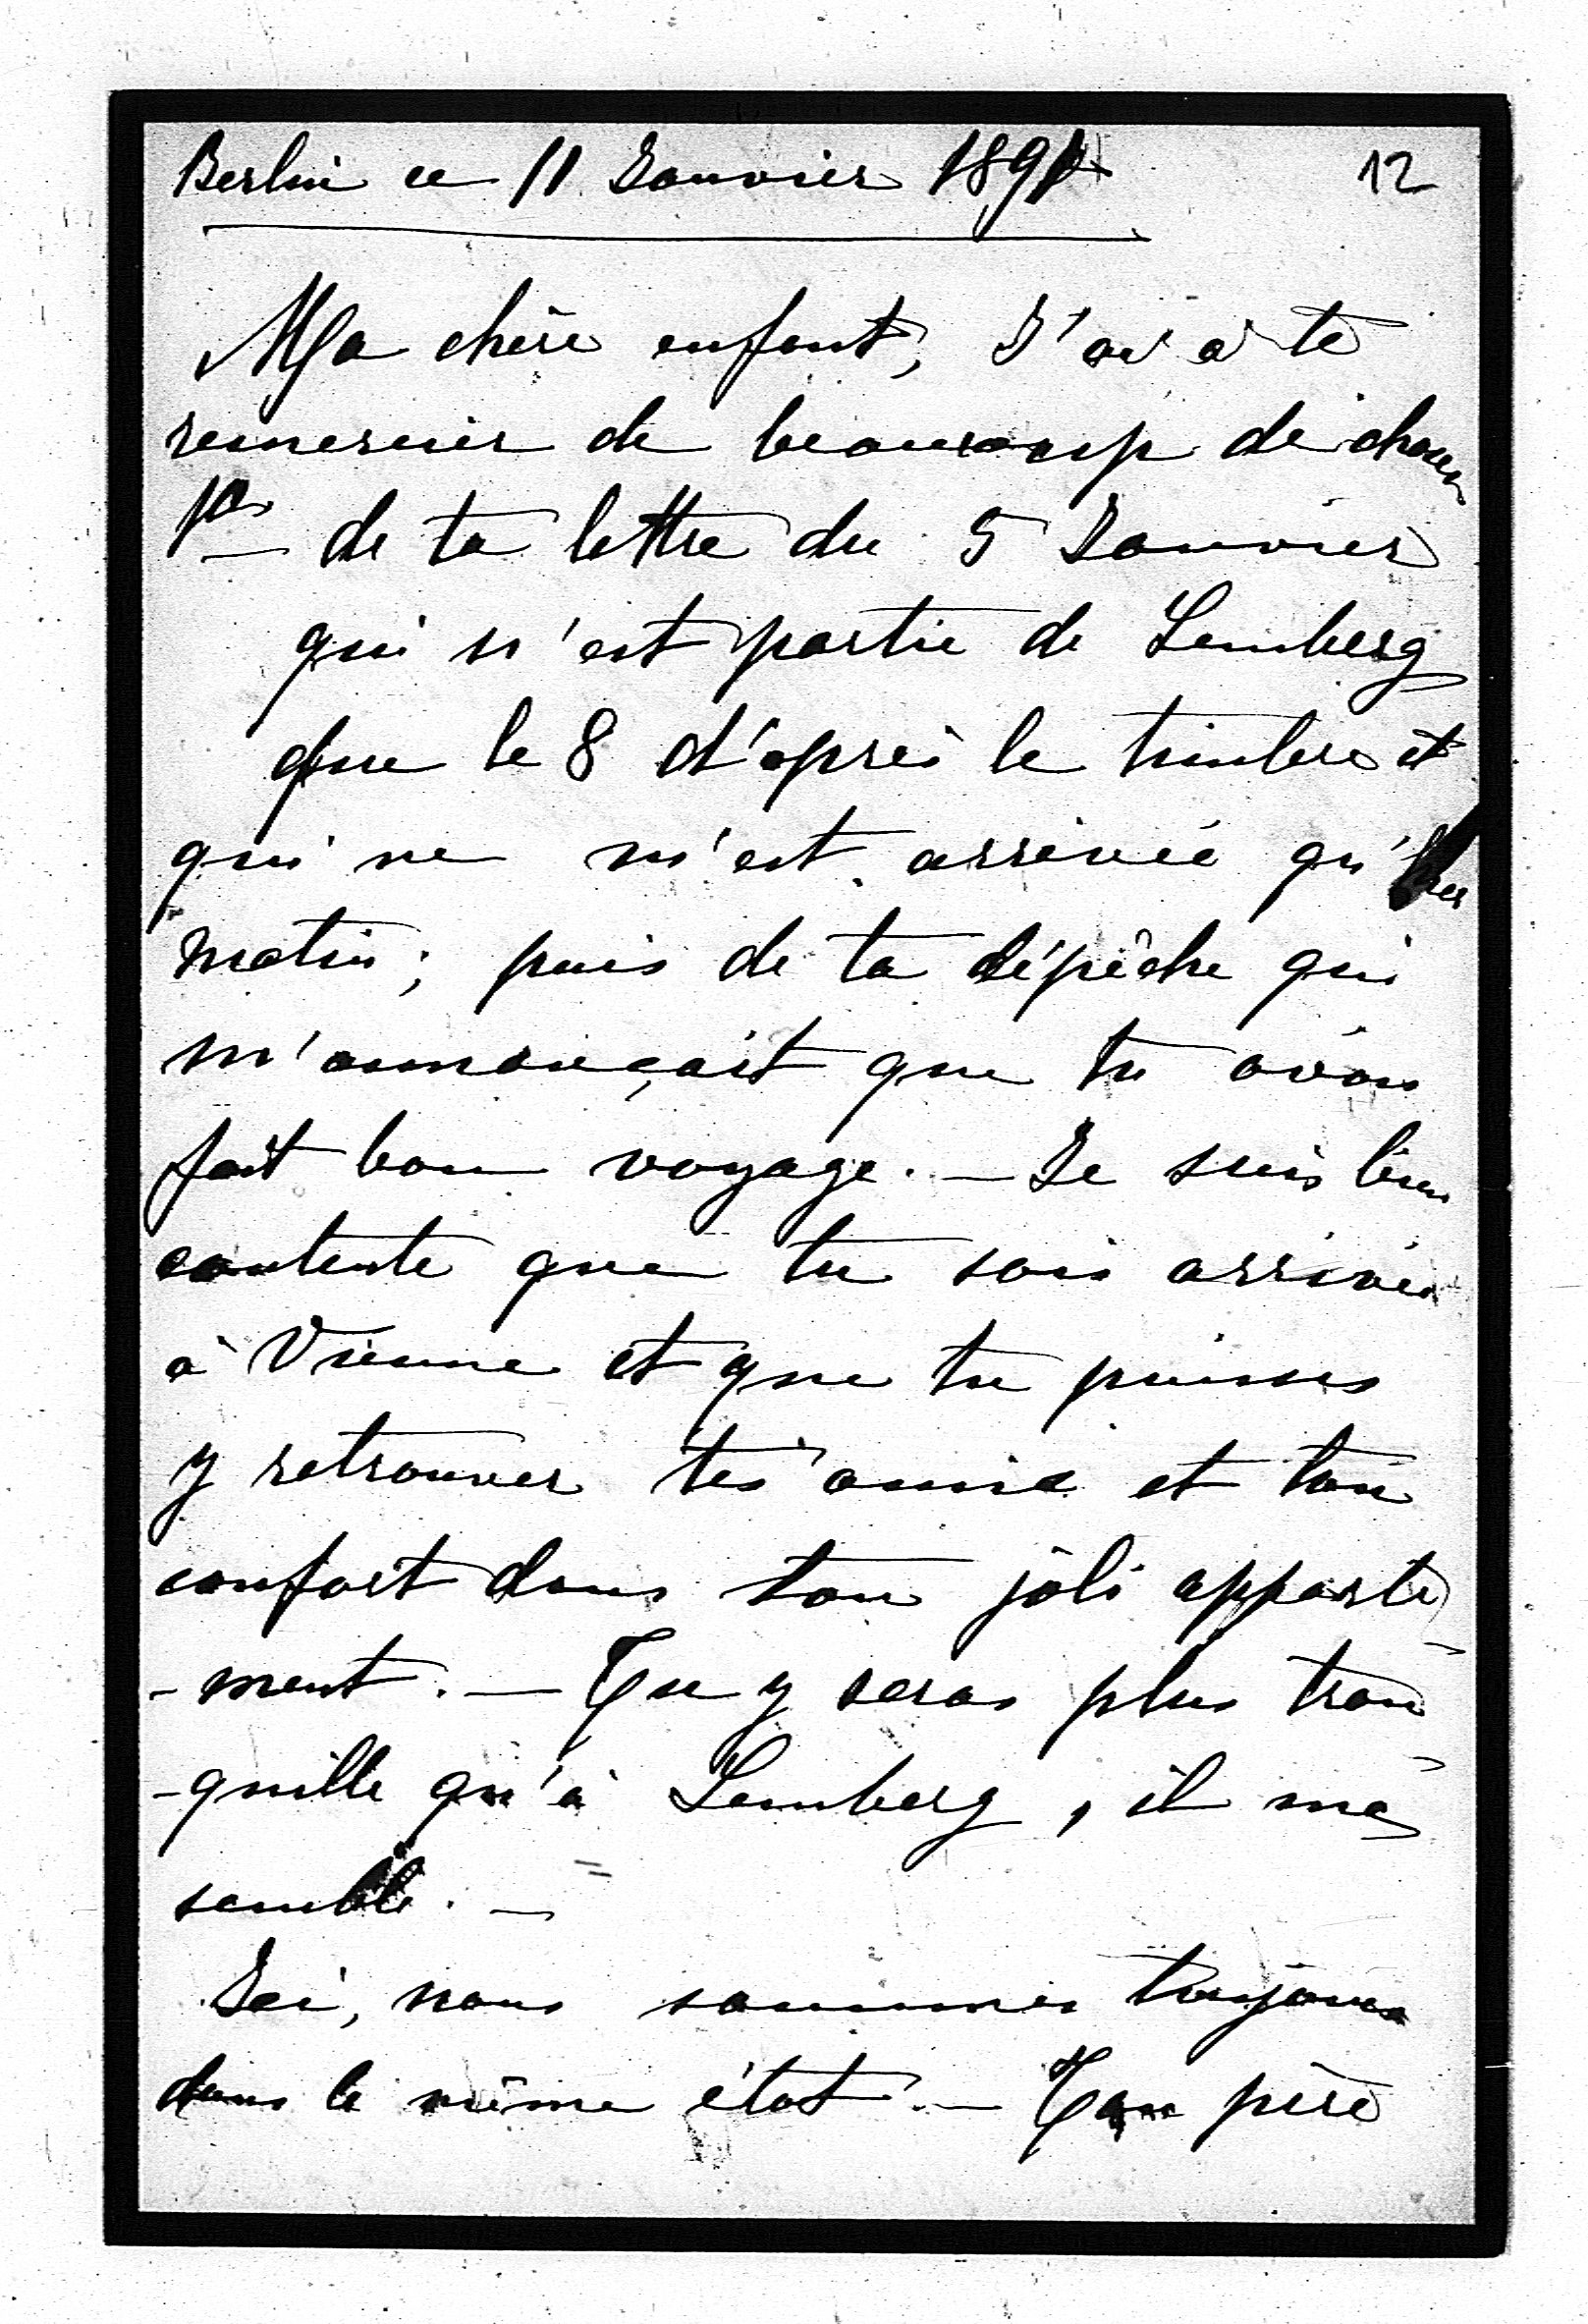 Berlin ce 11 Janvier 1891 12
Ma chère enfant, J'ai à te
remercier de beaucoup de choses
1o de ta lettre du 5 Janvier
qui n'est partie de Lemberg
que le 8 d'après le timbre et
qui ne m'est arrivée qu'hier
matin; puis de ta dépêche qui
m'annonçait que tu avais
fait bon voyage. — Je suis bien
contente que tu sois arrivée
à Vienne et que tu puisses
y retrouver tes amis et ton
confort dans ton joli apparte
-ment. — Tu y seras plus tran
-quille qu'à Lemberg, il me
semble. —
Ici, nous sommes toujours
dans le même état. — Ton père